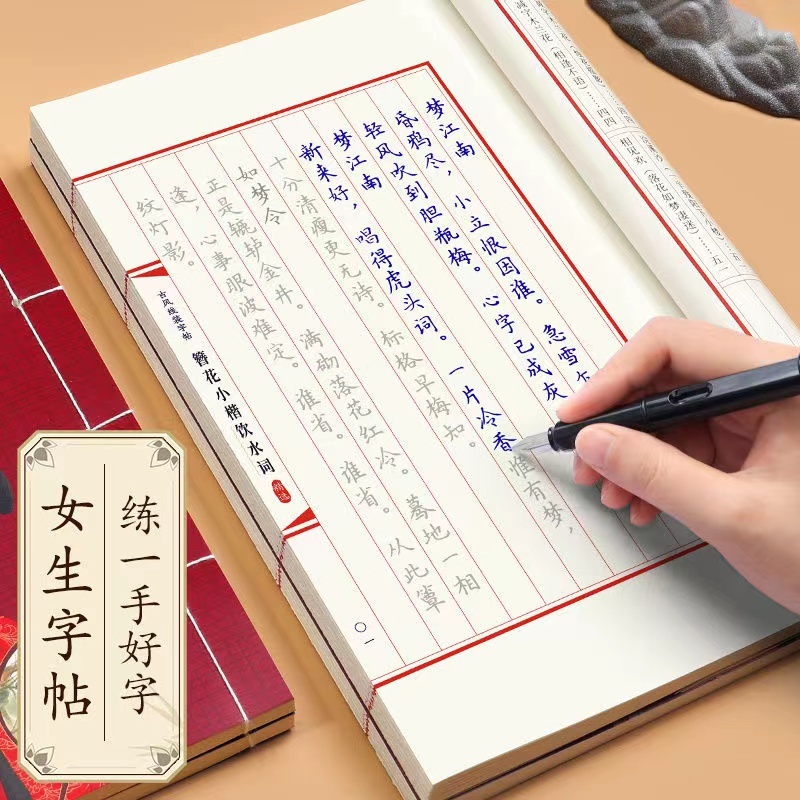 减字木兰花（相逢不语）……四四
相见欢（落花如梦凄迷）……五一
梦江南
昏鸦尽，小立恨因谁。急雪
轻风吹到胆瓶梅。心字已成灰
梦江南
新来好，唱得虎头词。一片冷香惟有梦，
十分清瘦更无诗。标格早梅知。
如梦令
正是辘轳金井。满砌落花红冷。蓦地一相
逢，心事眼波难定。谁省。谁省。从此簟
纹灯影。
古风线装字帖
簪花小楷饮水词
精选
〇一
练一手好字
女生字帖